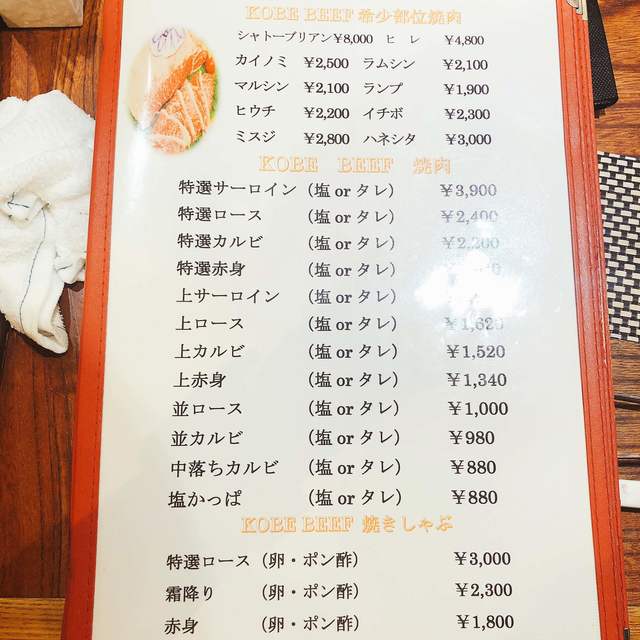 KOBE BEEF 希少部位焼肉
シャトーブリアン¥8,000 ヒレ ¥4,800
カイノミ ¥2,500 ラムシン ¥2,100
マルシン ¥2,100 ランプ ¥1,900
ヒウチ ¥2,200 イチボ ¥2,300
ミスジ ¥2,800 ハネシタ ¥3,000
KOBE BEEF 焼肉
特選サーロイン (塩 or タレ) ¥3,900
特選ロース (塩 or タレ) ¥2,400
特選カルビ (塩 or タレ) ¥2,200
特選赤身 (塩 or タレ)
上サーロイン (塩 or タレ)
上ロース (塩 or タレ) ¥1,620
上カルビ (塩 or タレ) ¥1,520
上赤身 (塩 or タレ) ¥1,340
並ロース (塩 or タレ) ¥1,000
並カルビ (塩 or タレ) ¥980
中落ちカルビ (塩 or タレ) ¥880
塩かっぱ (塩 or タレ) ¥880
KOBE BEEF 焼きしゃぶ
特選ロース (卵・ポン酢) ¥3,000
霜降り (卵・ポン酢) ¥2,300
赤身 (卵・ポン酢) ¥1,800